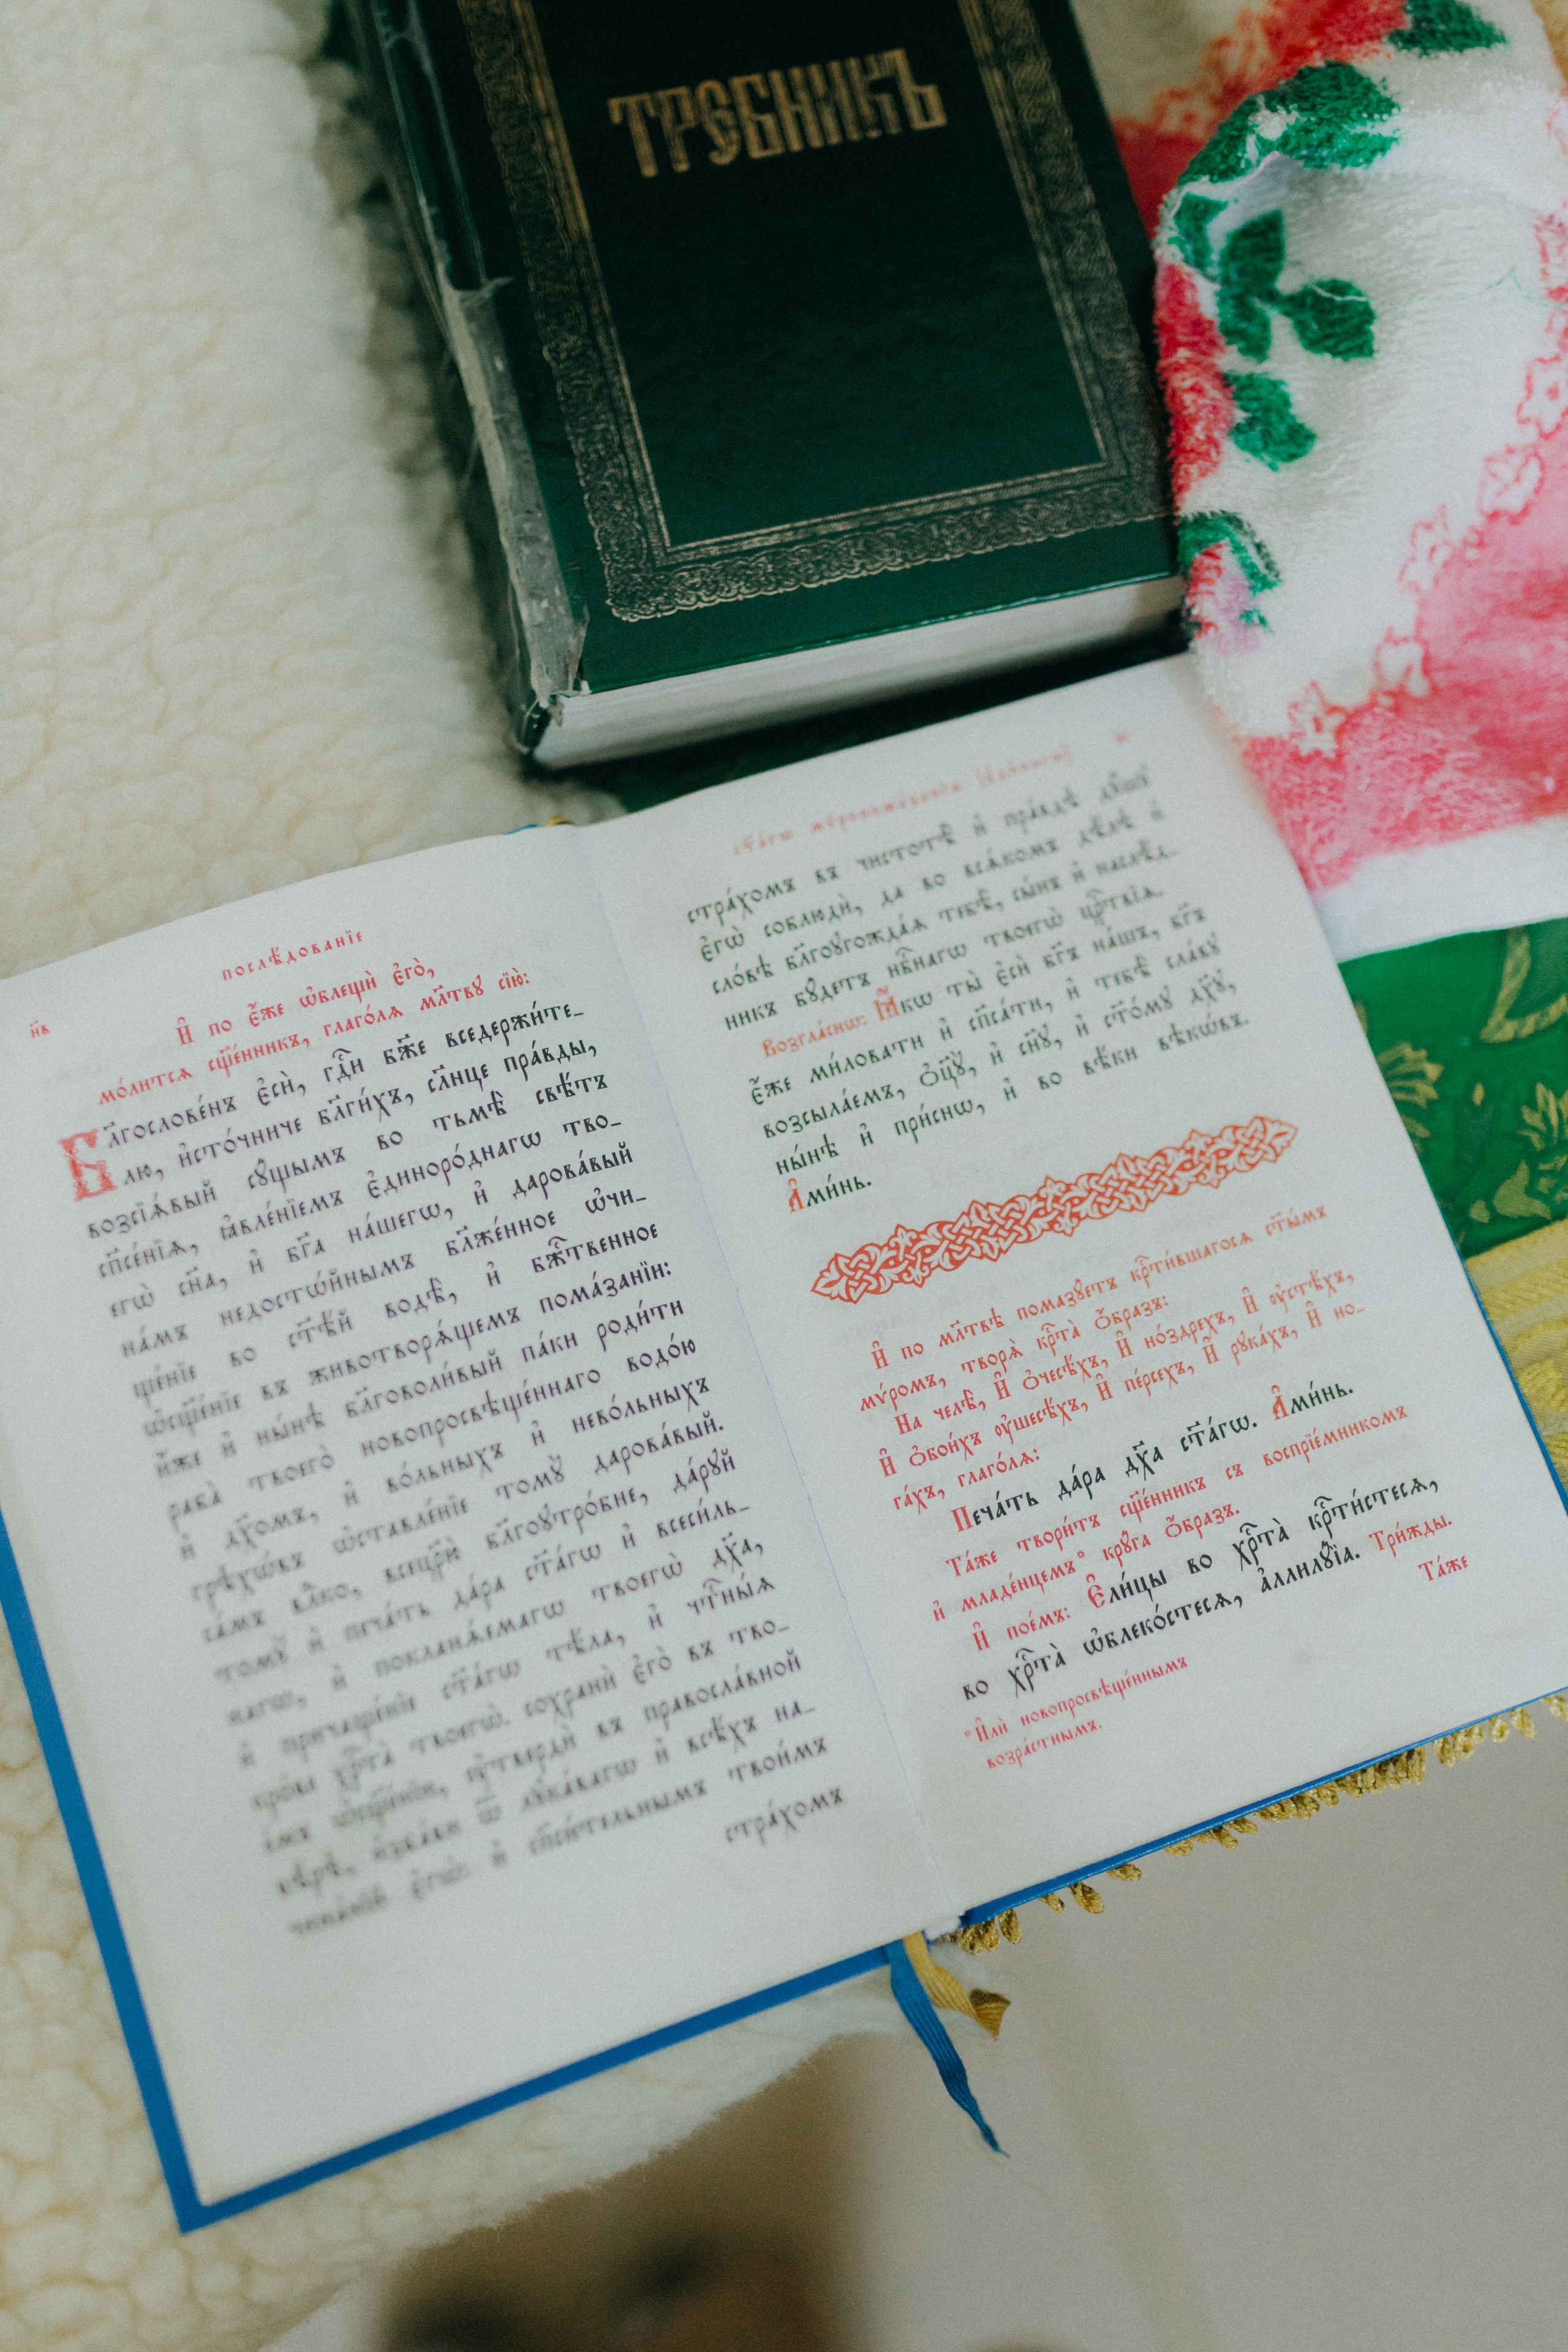 ТРЕБНИКЪ
н҃в
послѣ́дованїе
И҆ по є҆́же ѡ҆блещѝ є҆го̀,
мо́литсѧ сщ҃е́нникъ, глаго́лѧ мл҃твꙋ сїю̀:
Бл҃гослове́нъ є҆сѝ, гдⷭ҇и бж҃е вседержи́те-
лю, и҆сто́чниче бл҃ги́хъ, сл҃нце пра́вды,
возсїѧ́вый сꙋ́щымъ во тьмѣ̀ свѣ́тъ
сп҃се́нїѧ, ꙗ҆вле́нїемъ є҆диноро́днагѡ тво-
егѡ̀ сн҃а, и҆ бг҃а на́шегѡ, и҆ дарова́вый
на́мъ недостѡ́йнымъ бл҃же́нное ѡ҆чи-
ще́нїе во ст҃ѣ́й водѣ̀, и҆ бжⷭ҇твенное
ѡ҆сщ҃е́нїе въ животворѧ́щемъ пома́занїи:
и҆́же и҆ ны́нѣ бл҃говоли́вый па́ки роди́ти
раба̀ твоего̀ новопросвѣще́ннаго водо́ю
и҆ дх҃омъ, и҆ во́льныхъ и҆ нево́льныхъ
грѣхѡ́въ ѡ҆ставле́нїе томꙋ̀ дарова́вый.
са́мъ влⷣко, всецр҃ю̀ бл҃гоꙋтро́бне, да́рꙋй
томꙋ̀ и҆ печа́ть да́ра ст҃а́гѡ и҆ всеси́ль-
нагѡ, и҆ покланѧ́емагѡ твоегѡ̀ дх҃а,
и҆ причаще́нїе ст҃а́гѡ тѣ́ла, и҆ чⷭ҇тны́ѧ
кро́ве хрⷭ҇та̀ твоегѡ̀. сохранѝ є҆го̀ въ тво-
е́мъ ѡ҆сщ҃е́нїи, ᲂу҆твердѝ въ правосла́вной
вѣ́рѣ, и҆зба́ви ѿ лꙋка́вагѡ и҆ всѣ́хъ на-
чина́нїй є҆гѡ̀: и҆ сп҃си́тельнымъ твои́мъ
стра́хомъ
ст҃а́гѡ мѵропома́занїѧ
стра́хомъ въ чистотѣ̀ и҆ пра́вдѣ дꙋ́шꙋ
є҆гѡ̀ соблюдѝ, да во всѧ́комъ дѣ́лѣ и҆
сло́вѣ бл҃гоꙋгожда́ѧ тебѣ̀, сы́нъ и҆ наслѣ́д-
никъ бꙋ́детъ нбⷭ҇нагѡ твоегѡ̀ црⷭ҇твїѧ.
Возгла́снѡ: Ꙗ҆́кѡ ты̀ є҆сѝ бг҃ъ на́шъ, бг҃ъ
є҆́же ми́ловати и҆ сп҃са́ти, и҆ тебѣ̀ сла́вꙋ
возсыла́емъ, ѻ҆ц҃ꙋ̀, и҆ сн҃ꙋ, и҆ ст҃о́мꙋ дх҃ꙋ,
ны́нѣ и҆ при́снѡ, и҆ во вѣ́ки вѣкѡ́въ.
А҆ми́нь.
И҆ по мл҃твѣ помазꙋетъ крⷭ҇ти́вшагосѧ ст҃ы́мъ
мѵ́ромъ, творѧ̀ крⷭ҇та̀ ѻ҆́бразъ:
На челѣ̀, И҆ ѻ҆чесѣ́хъ, И҆ но́здрехъ, И҆ ᲂу҆стѣ́хъ,
И҆ ѻ҆бои́хъ ᲂу҆шесѣ́хъ, И҆ пе́рсехъ, И҆ рꙋка́хъ, И҆ но-
га́хъ, глаго́лѧ:
Печа́ть да́ра дх҃а ст҃а́гѡ. А҆ми́нь.
Та́же твори́тъ сщ҃е́нникъ съ воспрїе́мникомъ
и҆ младе́нцемъ* крꙋга ѻ҆́бразъ.
И҆ пое́мъ: Є҆ли́цы во хрⷭ҇та̀ крⷭ҇ти́стесѧ,
во хрⷭ҇та̀ ѡ҆блеко́стесѧ, а҆ллилꙋ́їа. Три́жды.
Та́же
* И҆лѝ новопросвѣще́ннымъ
возра́стнымъ.